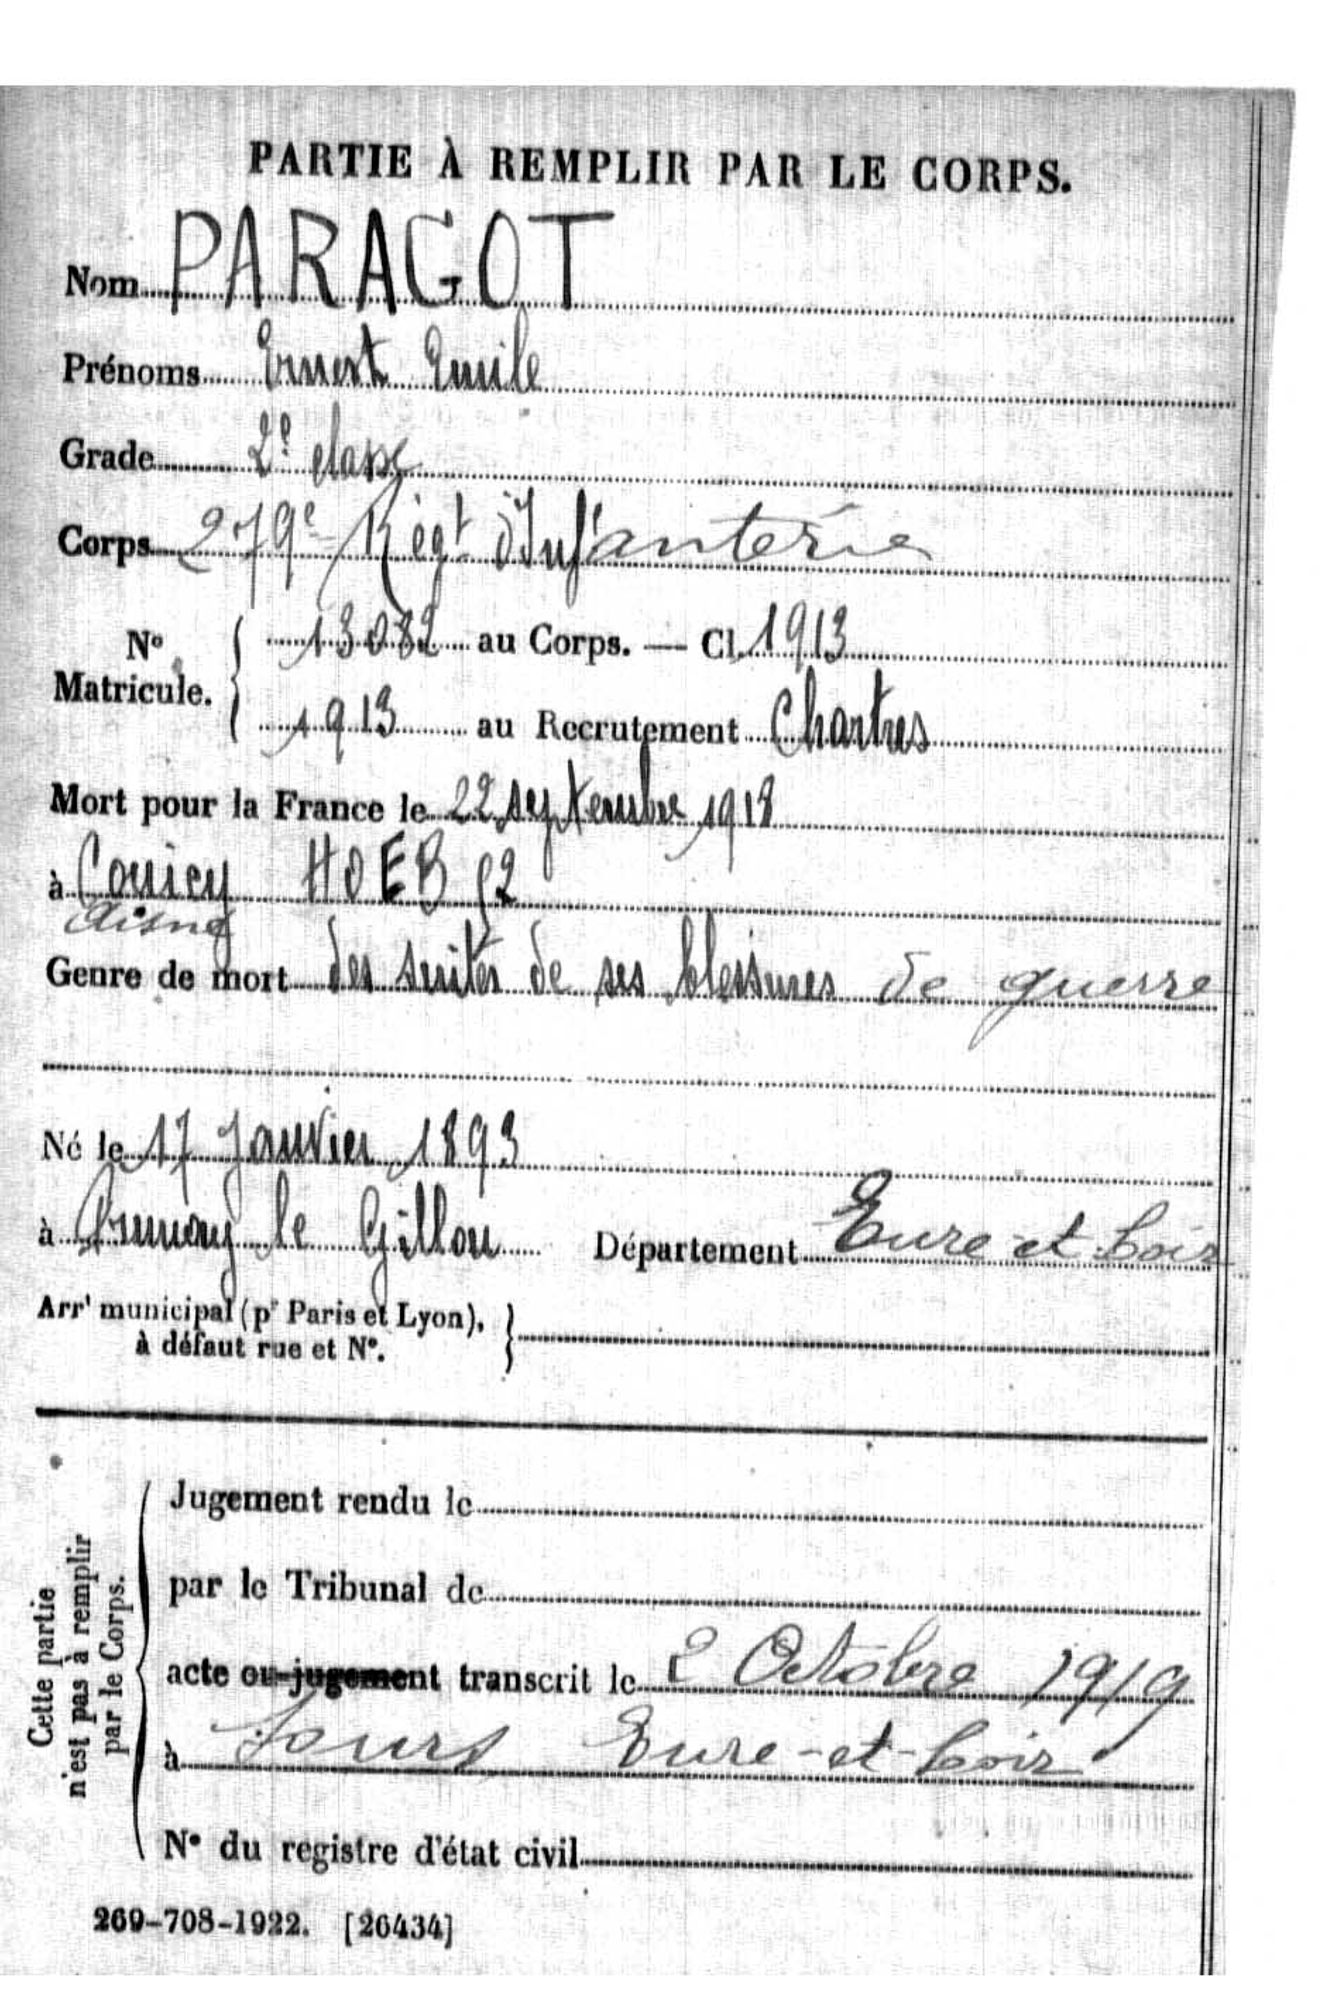 PARTIE À REMPLIR PAR LE CORPS.
Nom PARAGOT
Prénoms Ernest Emile
Grade 2e classe
Corps 279e Régt d'Infanterie
No Matricule. { 13082 au Corps. — Cl. 1913
1913 au Recrutement Chartres
Mort pour la France le 22 septembre 1918
à Couicy HOEB 52
Aisne
Genre de mort des suites de ses blessures de guerre
Né le 17 Janvier 1893
à Prunay le Gillon Département Eure-et-Loir
Arrt municipal (pr Paris et Lyon), à défaut rue et No. }
Cette partie n'est pas à remplir par le Corps.
Jugement rendu le
par le Tribunal de
acte ou jugement transcrit le 2 Octobre 1919
à Sours Eure-et-Loir
No du registre d'état civil
269-708-1922. [26434]